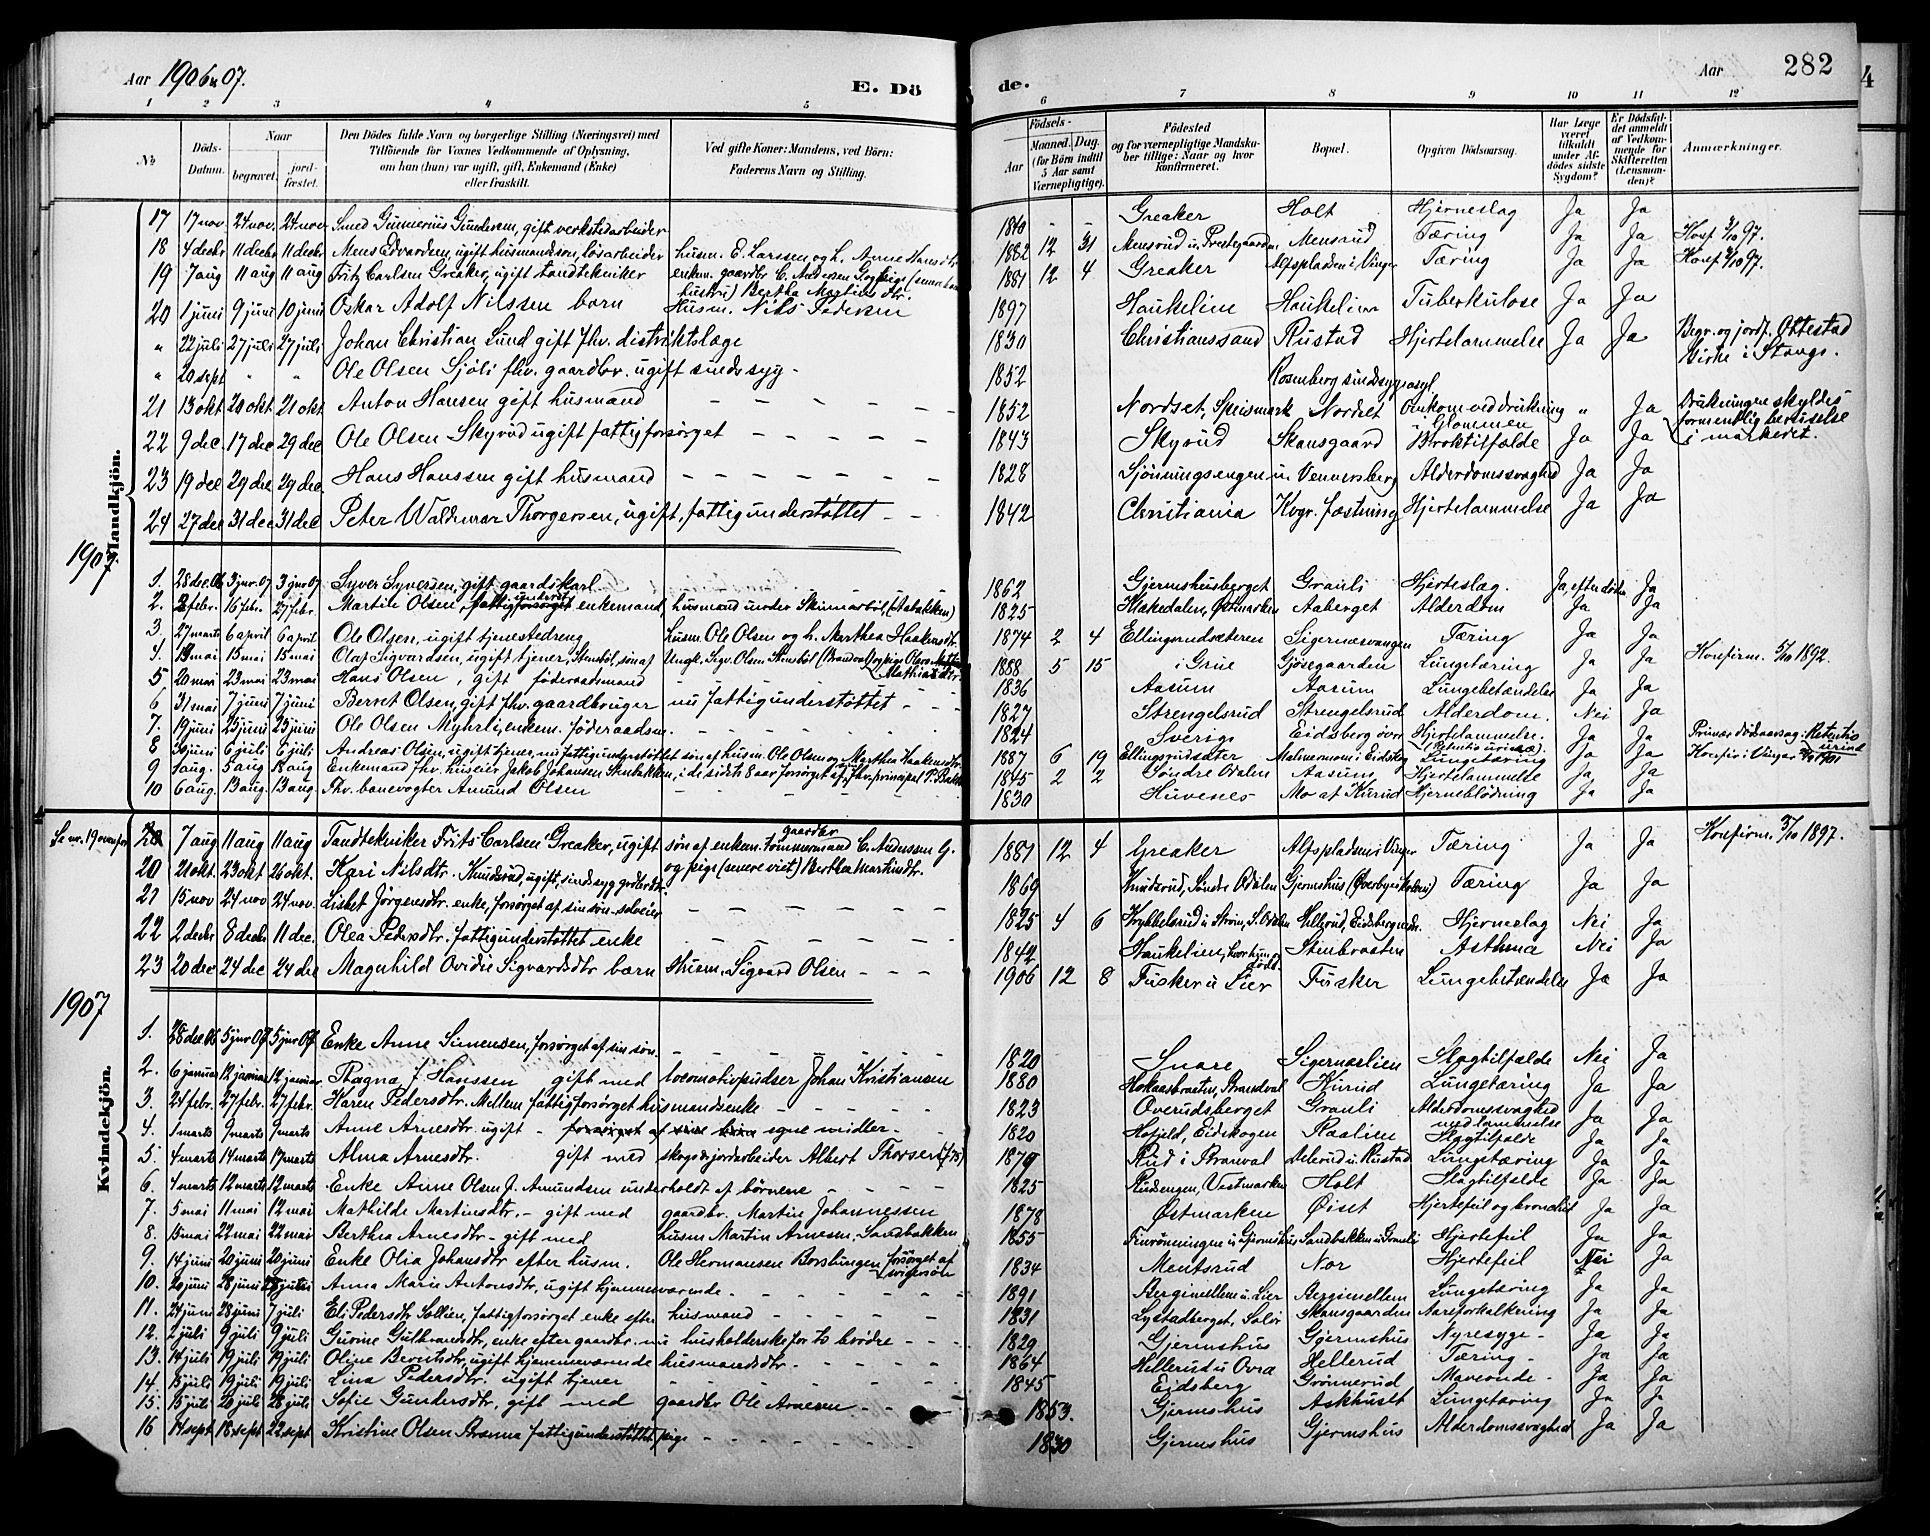 Aar 1906 n 07.
E. Dö
de.
Aar 282
1 2 3 4 5 6 7 8 9 10 11 12
No
Döds-Datum.
Naar begravet. jordfæstet.
Den Dödes fulde Navn og borgerlige Stilling (Næringsvei) med Tilföiende for Voxnes Vedkommende af Oplysning, om han (hun) var ugift, gift, Enkemand (Enke) eller fraskilt.
Ved gifte Koner: Mandens, ved Börn: Faderens Navn og Stilling.
Födsels-
Aar Maaned. Dag. (for Börn indtil 5 Aar samt Værnepligtige).
Födested og for værnepligtige Mandskaber tillige: Naar og hvor konfirmeret.
Bopæl.
Opgiven Dödsaarsag.
Har Læge været tilkaldt under Afdödes sidste Sygdom?
Er Dödsfaldet anmeldt af Vedkommende for Skifteretten (Lensmanden)?
Anmærkninger.
Mandkjön.
17 17 nov 24 nov 24 nov Smed Gunnerius Gundersen, gift, verkstedarbeider 1840 - - Greaker Holt Hjerneslag Ja Ja
18 4 decbr 11 decbr 11 decbr Mens Edvardsen, ugift husmandssön, lösarbeider husm. E. Larssen og h. Anne Hansdtr 1882 12 31 Mensrud u. Prestegaarden Mensrud Tæring Ja Ja Konf 3/10 97.
19 7 aug 11 aug 11 aug Fritz Carlsen Greaker, ugift tandtekniker enkem. gaardbr C. Andersen G og pige (senere hans hustru) Bertha Martinsdtr. 1881 12 4 Greaker Alfspladsen i Vinger Tæring Ja Ja Konf 3/10 97.
20 1 juni 9 juni 10 juni Oskar Adolf Nilssen barn Husm. Nils Pedersen 1897 Haukelien Haukelien Tuberkulose Ja Ja
" 22 juli 27 juli 27 juli Johan Christian Lund gift fhv. distriktslæge 1830 Christianssand Rustad Hjertelammelse Ja Ja Begr. og jordf. Ottestad Kirke i Stange.
" 20 sept " " Ole Olsen Sjöli fhv. gaardbr. ugift sindssyg - 1852 Rosenberg sindssygeasyl
21 13 okt 20 okt 21 okt Anton Hansen gift husmand 1852 Nordset, Speismark Nordset Omkom ved drukning i Glommen " Ja Drukningen skyldes formentlig beruselse i markedet.
22 9 dec 17 dec 29 dec Ole Olsen Skyrud ugift fattigforsörget 1843 Skyrud Skansgaard Broktilfælde Ja Ja
23 19 dec 29 dec 29 dec Hans Hanssen gift husmand 1828 Sjönnungsengen u. Vennersberg Alderdomssvaghed Ja Ja
24 27 dec 31 dec 31 dec Peter Waldemar Thorgersen, ugift, fattigunderstöttet - - 1842 Christiania Kvgr. fæstning Hjertelammelse Ja Ja
1907.
1. 28 dec. 06 3 jnr. 07 3 jnr 07 Syver Syversen, gift gaardskarl 1862 Gjermshusberget Grauli Hjerteslag. Ja, efter döden Ja
2. 8 febr. 16 febr. 27 febr. Martin Olsen, fattigunderst. enkemand, husmand under Skinnarböl (Aabakken) 1825 Klakedalen, Östmarken Aaberget Alderdom Ja Ja
3. 27 marts 6 april 6 april Ole Olsen, ugift tjenestedreng husm. Ole Olsen og h. Marthea Haakensdtr. 1874 2 4 Ellingsrudsæteren Sigernæsvangen Tæring Ja Ja Konfirm. 5/10 1892.
4. 13 mai 15 mai 15 mai Olaf Sigvardsen, ugift tjener, Stensböl, sön af Ungk. Sigv. Olsen Stensböl (Brandval) og pige Olava Mathiasdtr 1888 5 15 i Grue Gjösegaarden Lungetæring Ja Ja
5 20 mai 23 mai 23 mai Hans Olsen, gift föderaadsmand 1836 Aasum Aasum Lungebetændelse Ja Ja
6 31 mai 7 juni 7 juni Bernt Olsen, gift fhv. gaardbruger nu fattigunderstöttet - - - 1827 Strengelsrud Strengelsrud Alderdom. Nei Ja
7. 19 juni 25 juni 25 juni Ole Olsen Myhrli, enkem. föderaadsm. 1824 Sverige Eidsberg övre Hjertelammelse. (Retentio urinae) Ja Ja Primær dödsaarsag: Retentio urinae
8 30 juni 6 juli 6 juli Andreas Olsen, ugift tjener, nu fattigunderstöttet sön af husm. Ole Olsen og Marthea Haakensdtr. 1887 6 19 Ellingsrudsæter Malmermoen i Eidskog Lungetæring Ja Ja Konfir i Vinger 1901
9 1 aug. 5 aug 18 aug Enkemand fhv. huseier Jakob Johansen Stenbakken, i de sidste 8 aar forsörget af fhv. principal P. 1845 2 2 Söndre Odalen Aasum Hjertelammelse Ja Ja
10 6 aug 13 aug. 13 aug. Fhv. banevogter Amund Olsen 1830 Huvenes Mo af Kurud Hjerneblödning Ja Ja
Kvindekjön.
Se nr. 19 ovenfor 7 aug 11 aug 11 aug Tandtekniker Frits Carlsen Greaker, ugift sön af enkem. gaardbr tömmermand C. Andersen G. og pige (senere viet) Bertha Martinsdtr. 1881 12 4 Greaker Alfspladsen i Vinger Tæring Ja Ja Konfirm. 3/10 1897.
20 21 okt 23 okt 26 okt. Kari Nilsdtr. Knudsrud, ugift, sindssyg 1869 Knudsrud, Söndre Odalen Gjermshus (Överbyeiskolen) Tæring Ja Ja
21 15 nov 24 nov 24 nov. Lisbet Jörgensdtr. enke, forsörget af sin sön-selveier 1825 4 6 Krukkelsrud u. Strom, S. Odalen Hellerud, Eidsberg nedre. Hjerneslag Nei Ja
22 2 decbr 8 decbr 11 dec. Olea Pedersdtr. fattigunderstöttet enke 1842 Haukelien, hvor hun er född Stenbraaten Asthma Nei Ja
23 20 dec 24 dec 24 dec Magnhild Ovidie Sigvardsdtr barn Husm. Sigvard Olsen - - - 1906 12 8 Fusker u Lier Fusker Lungebetændelse Ja Ja
1907
1. 28 dec 06 5 jnr 07 5 jnr 07 Enke Anne Simensen, forsörget af sin sön. 1820 Snare Sigernæslien Slagtilfælde Nei Ja
2. 6 januar 12 januar 12 januar Ragna J. Hanssen gift med locomotivpudser Johan Kristiansen 1880 Hokaasbraaten, Brandval Kurud Lungetæring Ja Ja
3. 24 febr. 27 febr. 27 febr. Karen Pedersdtr. Mellem fattigforsörget husmandsenke 1823 Overudsberget Grauli Alderdomssvaghed med lammelse Ja Ja
4. 1 marts 9 marts 9 marts Anne Arnesdtr. ugift - forsörget af sine börn egne midler - 1820 Hofjeld, Eidskogen Raalien Slagtilfælde Ja Ja
5. 4 marts 14 marts 17 marts Alma Arnesdtr. gift med skogs & jordarbeider Albert Thorsen (f. 75) 1879 Rud i Branval Melerud u. Rustad Lungetæring Ja Ja
6 4 marts 12 marts 12 marts Enke Anne Olsen f. Amundsen underholdt af börnene 1825 Rudsengen, Vestmarken Holt Slagtilfælde Ja Ja
7. 5 mai 11 mai 12 mai Mathilde Martinsdtr. - gift med gaardbr. Martin Johannessen 1878 Östmarken Öiset Hjertefeil og bronchit Ja Ja
8. 15 mai 22 mai 22 mai Berthea Arnesdtr - gift med husm Martin Arnesen, Sandbakken 1855 Finröningen u. Gjermshus Sandbakken u. Grauli Hjertefeil Ja Ja
9. 14 juni 20 juni 20 juni Enke Olia Johansdtr efter husm. Ole Hermansen Borslungen forsörget af svigersön 1834 Mentsrud Nor Hjertefeil Nei Ja
10. 20 juni 28 juni 28 juli Anna Marie Antonsdtr, ugift hjemmeværende 1891 Bergimellem u. Lier Bergimellem Lungetæring Ja Ja
11. 24 juni 28 juni 7 juli Eli Pedersdtr Sollien, fattigforsörget enke efter husmand 1831 Lystadberget, Solör Skansgaarden Aareforkalkning Ja Ja
12. 2 juli 9 juli 9 juli Gurine Gulbrandsdtr, enke efter gaardbr. nu husholderske for to brödre - - - 1829 Gjermshus Gjermshus Nyresyge - Ja Ja
13. 14 juli 19 juli 19 juli Oline Berntsdtr, ugift hjemmeværende husmandsdtr. 1864 Hellerud u Ovra Hellerud Tæring - Ja Ja
14. 18 juli 19 juli 19 juli Lina Pedersdtr. ugift tjener 1845 Eidsberg Grönnerud Maveonde - Ja Ja
15. 15 juli 20 juli 28 juli Sofie Gundersdtr, gift med gaardbr Ole Arnesen 1853. Gjermshus Askhuslt Lungetæring Ja Ja
16 14 sept 18 sept 22 sept Kristine Olsen Branna fattigunderstöttet pige 1830 Gjermshus Gjermshus Alderdomssvaghed Ja Ja